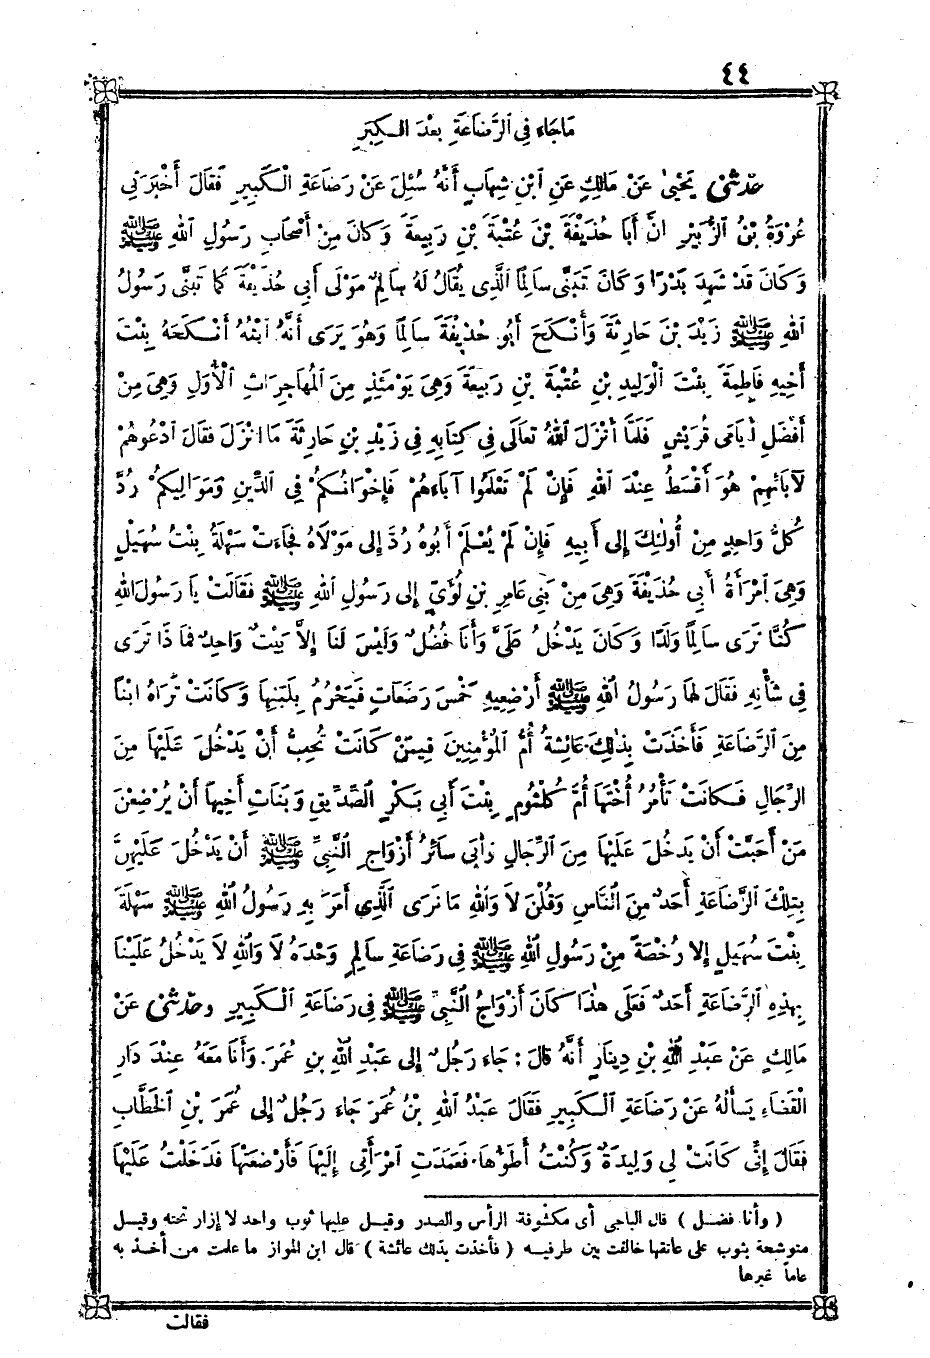 ٤٤
مَاجَاءَ فِي الرَّضَاعَةِ بَعْدَ الْكِبَرِ
حَدَّثَنِي يَحْيَىٰ عَنْ مَالِكٍ عَنِ ابْنِ شِهَابٍ أَنَّهُ سُئِلَ عَنْ رَضَاعَةِ الْكَبِيرِ فَقَالَ أَخْبَرَنِي
عُرْوَةُ بْنُ الزُّبَيْرِ انَّ أَبَا حُذَيْفَةَ بْنَ عُتْبَةَ بْنِ رَبِيعَةَ وَكَانَ مِنْ أَصْحَابِ رَسُولِ اللهِ ﷺ
وَكَانَ قَدْ شَهِدَ بَدْرًا وَكَانَ تَبَنَّى سَالِمًا الَّذِي يُقَالُ لَهُ سَالِمٌ مَوْلَى أَبِي حُذَيْفَةَ كَمَا تَبَنَّى رَسُولُ
اللهِ ﷺ زَيْدَ بْنَ حَارِثَةَ وَأَنْكَحَ أَبُو حُذَيْفَةَ سَالِمًا وَهُوَ يَرَى أَنَّهُ ابْنُهُ أَنْكَحَهُ بِنْتَ
أَخِيهِ فَاطِمَةَ بِنْتَ الْوَلِيدِ بْنِ عُتْبَةَ بْنِ رَبِيعَةَ وَهِيَ يَوْمَئِذٍ مِنَ الْمُهَاجِرَاتِ الْأُوَلِ وَهِيَ مِنْ
أَفْضَلِ أَيَامَى قُرَيْشٍ فَلَمَّا أَنْزَلَ اللهُ تَعَالَى فِي كِتَابِهِ فِي زَيْدِ بْنِ حَارِثَةَ مَا انْزَلَ فَقَالَ ادْعُوهُمْ
لآبَائِهِمْ هُوَ أَقْسَطُ عِنْدَ اللهِ فَإِنْ لَمْ تَعْلَمُوا آبَاءَهُمْ فَإِخْوَانُكُمْ فِي الدِّينِ وَمَوَالِيكُمْ رُدَّ
كُلُّ وَاحِدٍ مِنْ أُولَئِكَ إِلَى أَبِيهِ فَإِنْ لَمْ يُعْلَمْ أَبُوهُ رُدَّ إِلَى مَوْلَاهُ فَجَاءَتْ سَهْلَةُ بِنْتُ سُهَيْلٍ
وَهِيَ امْرَأَةُ أَبِي حُذَيْفَةَ وَهِيَ مِنْ بَنِي عَامِرِ بْنِ لُؤَيٍّ إِلَى رَسُولِ اللهِ ﷺ فَقَالَتْ يَا رَسُولَ اللهِ
كُنَّا نَرَى سَالِمًا وَلَدًا وَكَانَ يَدْخُلُ عَلَيَّ وَأَنَا فُضُلٌ وَلَيْسَ لَنَا إِلاَّ بَيْتٌ وَاحِدٌ فَمَا ذَا تَرَى
فِي شَأْنِهِ فَقَالَ لَهَا رَسُولُ اللهِ ﷺ أَرْضِعِيهِ خَمْسَ رَضَعَاتٍ فَيَحْرُمُ بِلَبَنِهَا وَكَانَتْ تَرَاهُ ابْنًا
مِنَ الرَّضَاعَةِ فَأَخَذَتْ بِذَلِكَ عَائِشَةُ أُمُّ الْمُؤْمِنِينَ فِيمَنْ كَانَتْ تُحِبُّ أَنْ يَدْخُلَ عَلَيْهَا مِنَ
الرِّجَالِ فَكَانَتْ تَأْمُرُ أُخْتَهَا أُمَّ كُلْثُومٍ بِنْتَ أَبِي بَكْرٍ الصِّدِّيقِ وَبَنَاتِ أَخِيهَا أَنْ يُرْضِعْنَ
مَنْ أَحَبَّتْ أَنْ يَدْخُلَ عَلَيْهَا مِنَ الرِّجَالِ وَأَبَى سَائِرُ أَزْوَاجِ النَّبِيِّ ﷺ أَنْ يَدْخُلَ عَلَيْهِنَّ
بِتِلْكَ الرَّضَاعَةِ أَحَدٌ مِنَ النَّاسِ وَقُلْنَ لَا وَاللهِ مَا نَرَى الَّذِي أَمَرَ بِهِ رَسُولُ اللهِ ﷺ سَهْلَةَ
بِنْتَ سُهَيْلٍ إِلا رُخْصَةً مِنْ رَسُولِ اللهِ ﷺ فِي رَضَاعَةِ سَالِمٍ وَحْدَهُ لَا وَاللهِ لَا يَدْخُلُ عَلَيْنَا
بِهٰذِهِ الرَّضَاعَةِ أَحَدٌ فَعَلَى هٰذَا كَانَ أَزْوَاجُ النَّبِيِّ ﷺ فِي رَضَاعَةِ الْكَبِيرِ وَحَدَّثَنِي عَنْ
مَالِكٍ عَنْ عَبْدِ اللهِ بْنِ دِينَارٍ أَنَّهُ قَالَ : جَاءَ رَجُلٌ إِلَى عَبْدِ اللهِ بْنِ عُمَرَ. وَأَنَا مَعَهُ عِنْدَ دَارِ
الْقَضَاءِ يَسْأَلُهُ عَنْ رَضَاعَةِ الْكَبِيرِ فَقَالَ عَبْدُ اللهِ بْنُ عُمَرَ جَاءَ رَجُلٌ إِلَى عُمَرَ بْنِ الْخَطَّابِ
فَقَالَ إِنِّي كَانَتْ لِي وَلِيدَةٌ وَكُنْتُ أَطَؤُهَا. فَعَمَدَتِ امْرَأَتِي إِلَيْهَا فَأَرْضَعَتْهَا فَدَخَلْتُ عَلَيْهَا
( وأنا فضل ) قال الباجي أي مكشوفة الرأس والصدر وقيل عليها ثوب واحد لا إزار تحته وقيل
متوشحة بثوب على عاتقها خالفت بين طرفيه ( فأخذت بذلك عائشة ) قال ابن المواز ما علمت من أخذ به
عاماً غيرها
فقالت